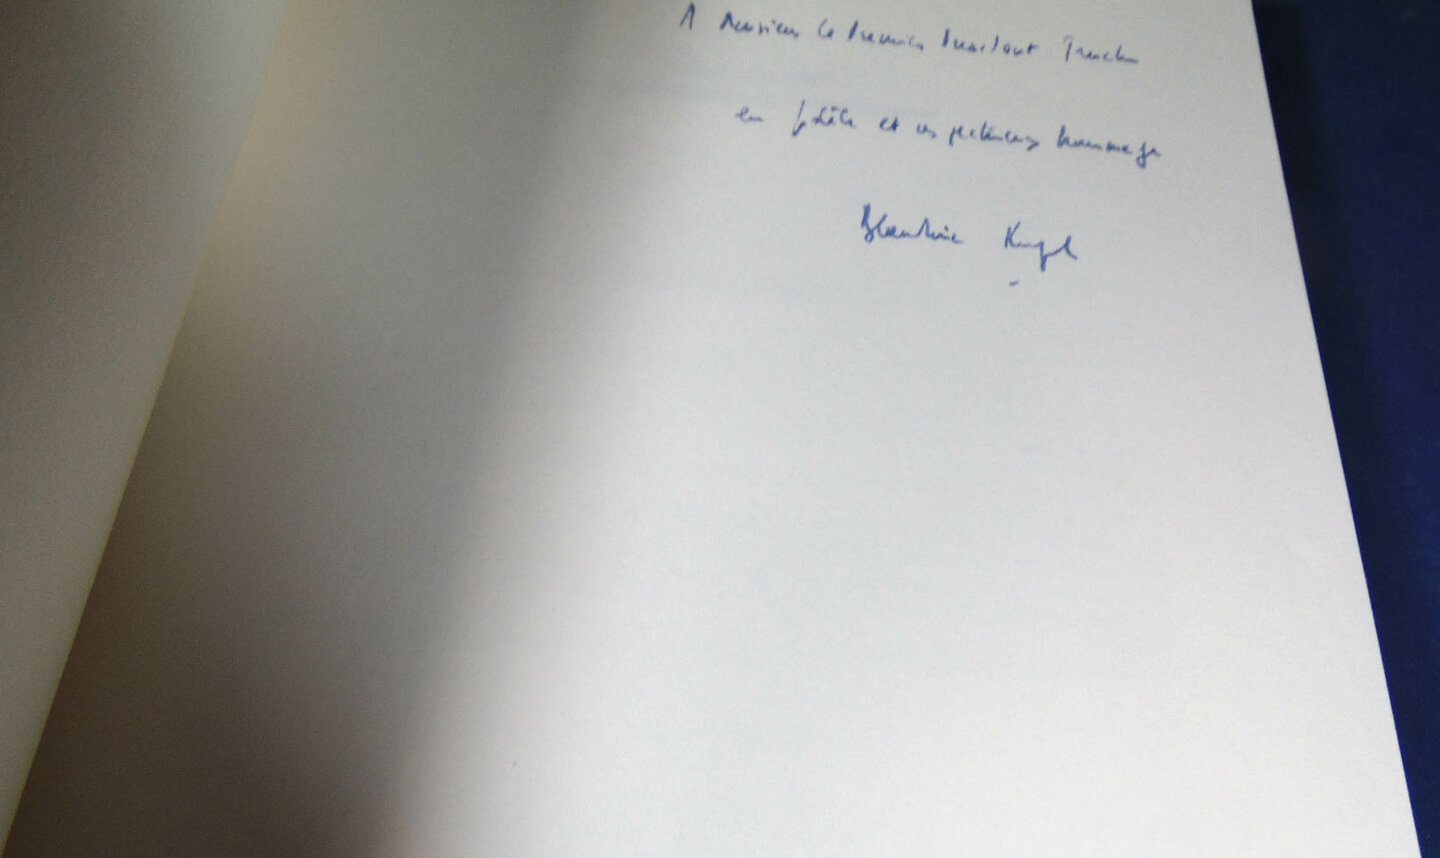 A Monsieur le Premier Président
en fidèle et respectueux hommage
Blandine Kriegel